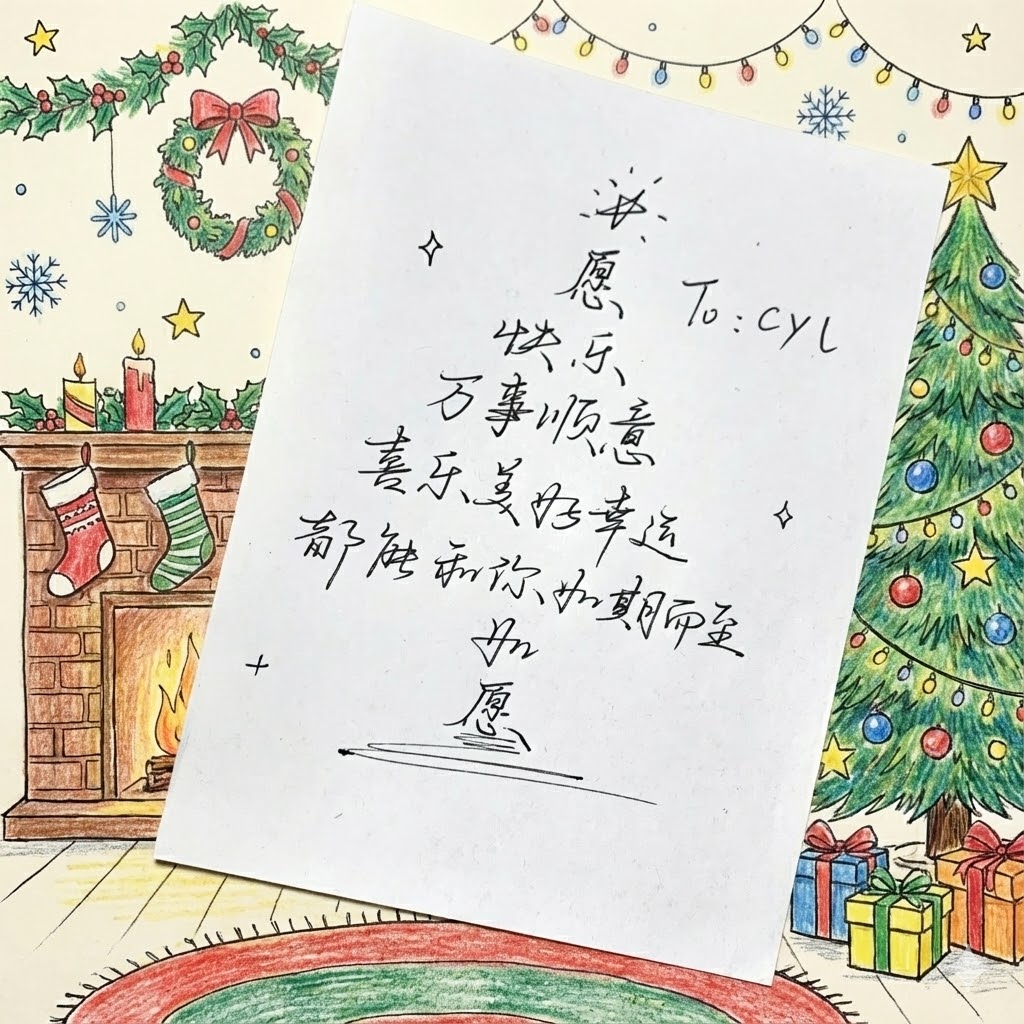 愿
To: CYL
快乐
万事顺意
喜乐美好幸运
都能和你如期而至
如
愿